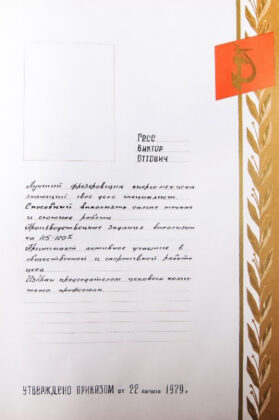 Гесс
Виктор
Оттович
Лучший фрезеровщик энергомехцеха
знающий свое дело специалист.
Способный выполнять самые точные
и сложные работы.
Производственные задания выполняет
на 115-120%
Принимает активное участие в
общественной и спортивной работе
цеха.
Избран председателем цехового коми-
тета профсоюза.
УТВЕРЖДЕНО ПРИКАЗОМ от 22 августа 1979 г.